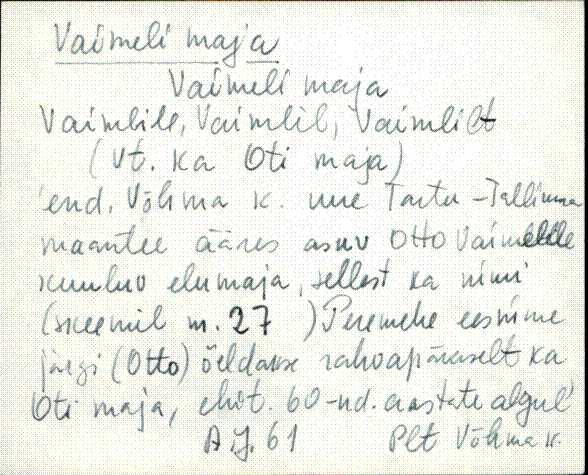 Vaimeli maja
Vaimeli maja
Vaimlile, Vaimlil, Vaimlilt
(vt. ka Oti maja)
end. Võhma k. uue Tartu-Tallinna
maantee ääres asuv Otto Vaimelile
kuuluv elumaja, sellest ka nimi
(skeemil m. 27 ) Peremehe eesnime
järgi (Otto) öeldakse rahvapäraselt ka
Oti maja, ehit. 60-nd. aastate algul
A.J. 61 Plt Võhma k.